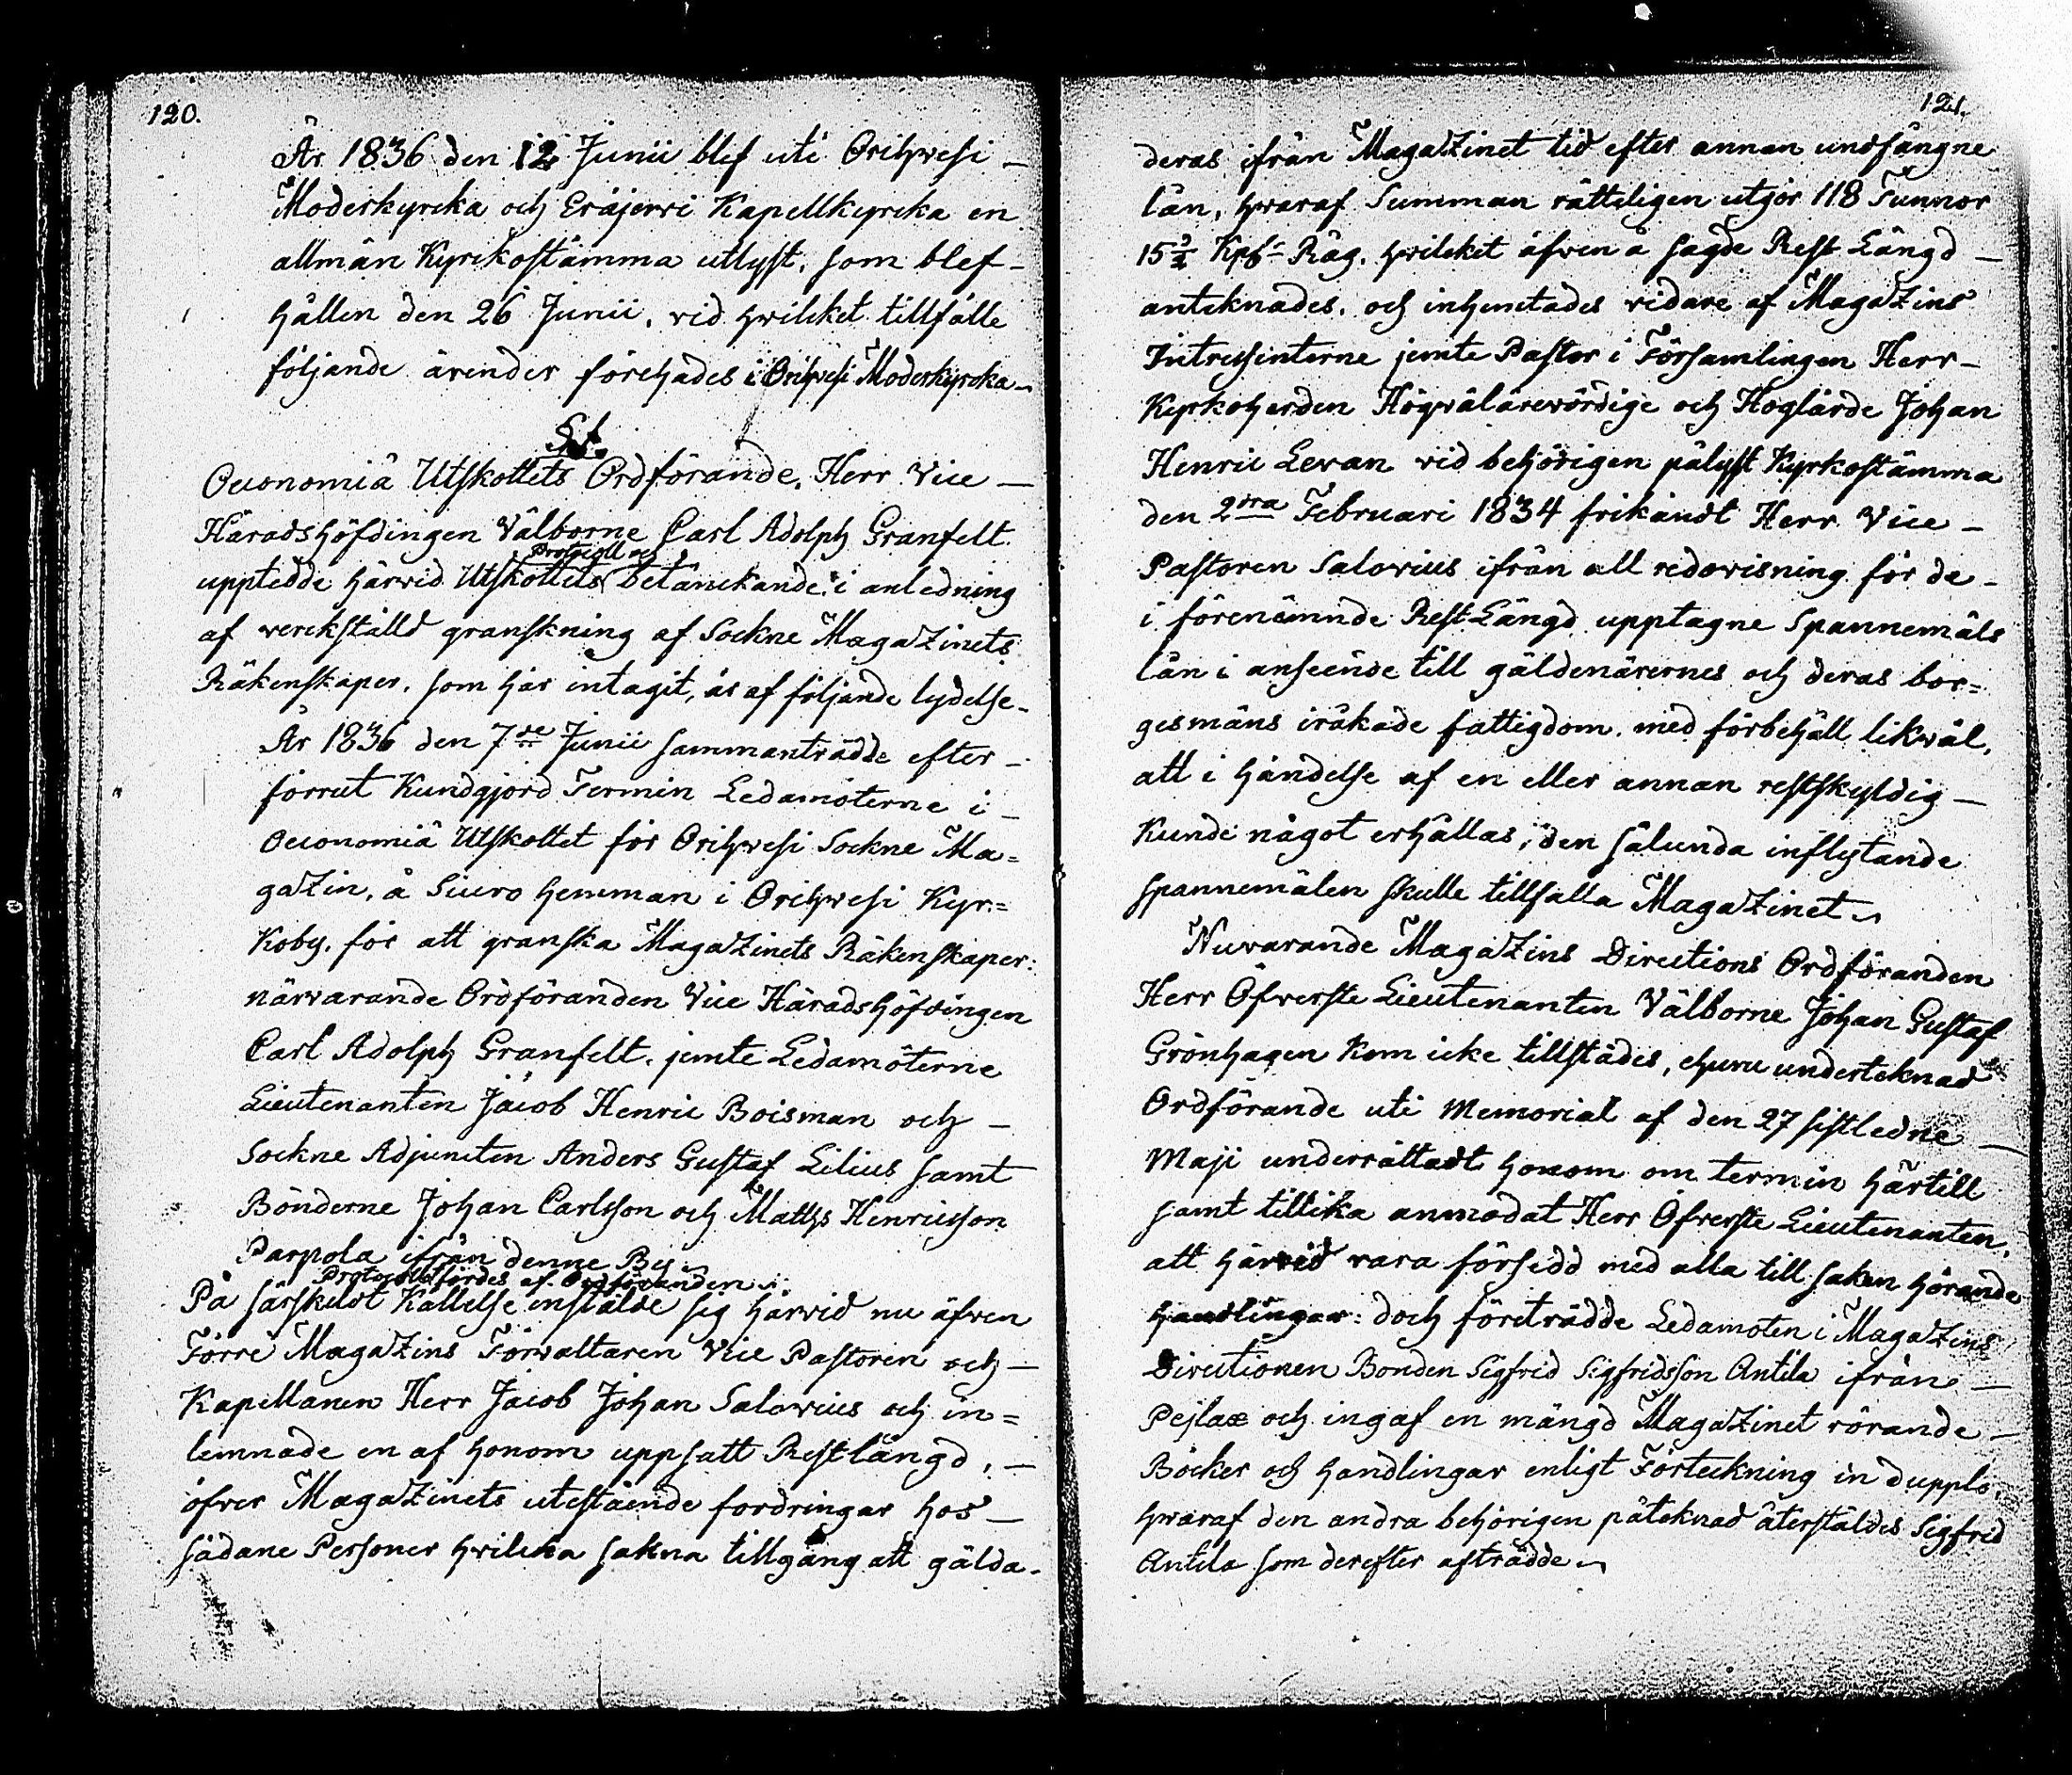 120.
År 1836 den 12 Junii blef uti Orihvesi –
Moderkyrcka och Eräjervi Kapellkyrcka en
allmän Kyrckostämma utlyst, som blef –
hållen den 26 Junii, vid hvilcket tillfälle
följande ärender förehades i Orihvesi Moderkyrcka
§ 1.
Oeconomiæ Utskottets Ordförande, Herr Vice –
Häradshöfdingen Välborne Carl Adolph Granfelt
Protocoll och
upptedde härvid Utskottets betänckande i anledning
af verckställd granskning af Sockne Magazinets
Räkenskaper, som här intagit, är af följande lydelse.
År 1836 den 7de Junii sammanträdde efter –
förrut Kundgjord Termin Ledamöterne i –
Oeconomiæ Utskottet för Orihvesi Sockne Ma=
gazin, å Siuro hemman i Orihvesi Kyr=
Koby, för att granska Magazinets Räkenskaper:
närvarande Ordföranden Vice Häradshöfdingen
Carl Adolph Granfelt, jemte Ledamöterne
Lieutenanten Jacob Henric Boisman och –
Sockne Adjuncten Anders Gustaf Lilius samt
Bönderne Johan Carlsson och Matths Henricsson
Parpola ifrån denne By
Protocollet fördes af Ordföranden
På särskildt Kallelse inställde sig härvid nu äfven
Förre Magazins Förvaltaren Vice Pastoren och –
Kapellanen Herr Jacob Johan Salovius och in=
lemnade en af honom uppsatt Restlängd, –
öfver Magazinets utestående fordringar hos –
sådane Personer hvilcka sakna tillgång att gälda
121.
deras ifrån Magazinet tid efter annan undfångne
lån, hvaraf Summan rätteligen utgör 118 Tunnor
15 3/4 Kpr Råg, hvilcket äfven å sagde Rest Längd –
antecknades, och inhemtades vidare af Magazins
Intressenterne jemte Pastor i Församlingen Herr –
Kyrkoherden Högvälärevördige och Höglärde Johan
Henric Levan vid behörigen pålyst Kyrkostämma
den 2dra Februari 1834 frikändt Herr Vice –
Pastoren Salovius ifrån all redovisning för de –
i förenämnde Rest-Längd upptagne Spannemåls
lån i anseende till gäldenärernes och deras bor=
gesmäns iråkade fattigdom, med förbehåll likväl,
att i händelse af en eller annan restskyldig –
Kunde något erhållas, den sålunda inflytande
spannemålen skulle tillfalla Magazinet
Nuvarande Magazins Directions Ordföranden
Herr Öfverste Lieutenanten Välborne Johan Gustaf
Grönhagen Kom icke tillstädes, ehuru undertecknad
Ordförande uti Memorial af den 27 sistledne –
Maji underrättadt honom om termin härtill
samt tillika anmodat Herr Öfverste Lieutenanten,
att härvid vara försedd med alla till saken hörande
handlingar: doch företrädde Ledamoten i Magazins
Directionen Bonden Sigfrid Sigfridsson Antila ifrån –
Pejlax och ingaf en mängd Magazinet rörande –
Böcker och handlingar enligt Förteckning in dupplo,
hvaraf den andra behörigen påtecknad återställdes Sigfrid
Antila som derefter afträdde